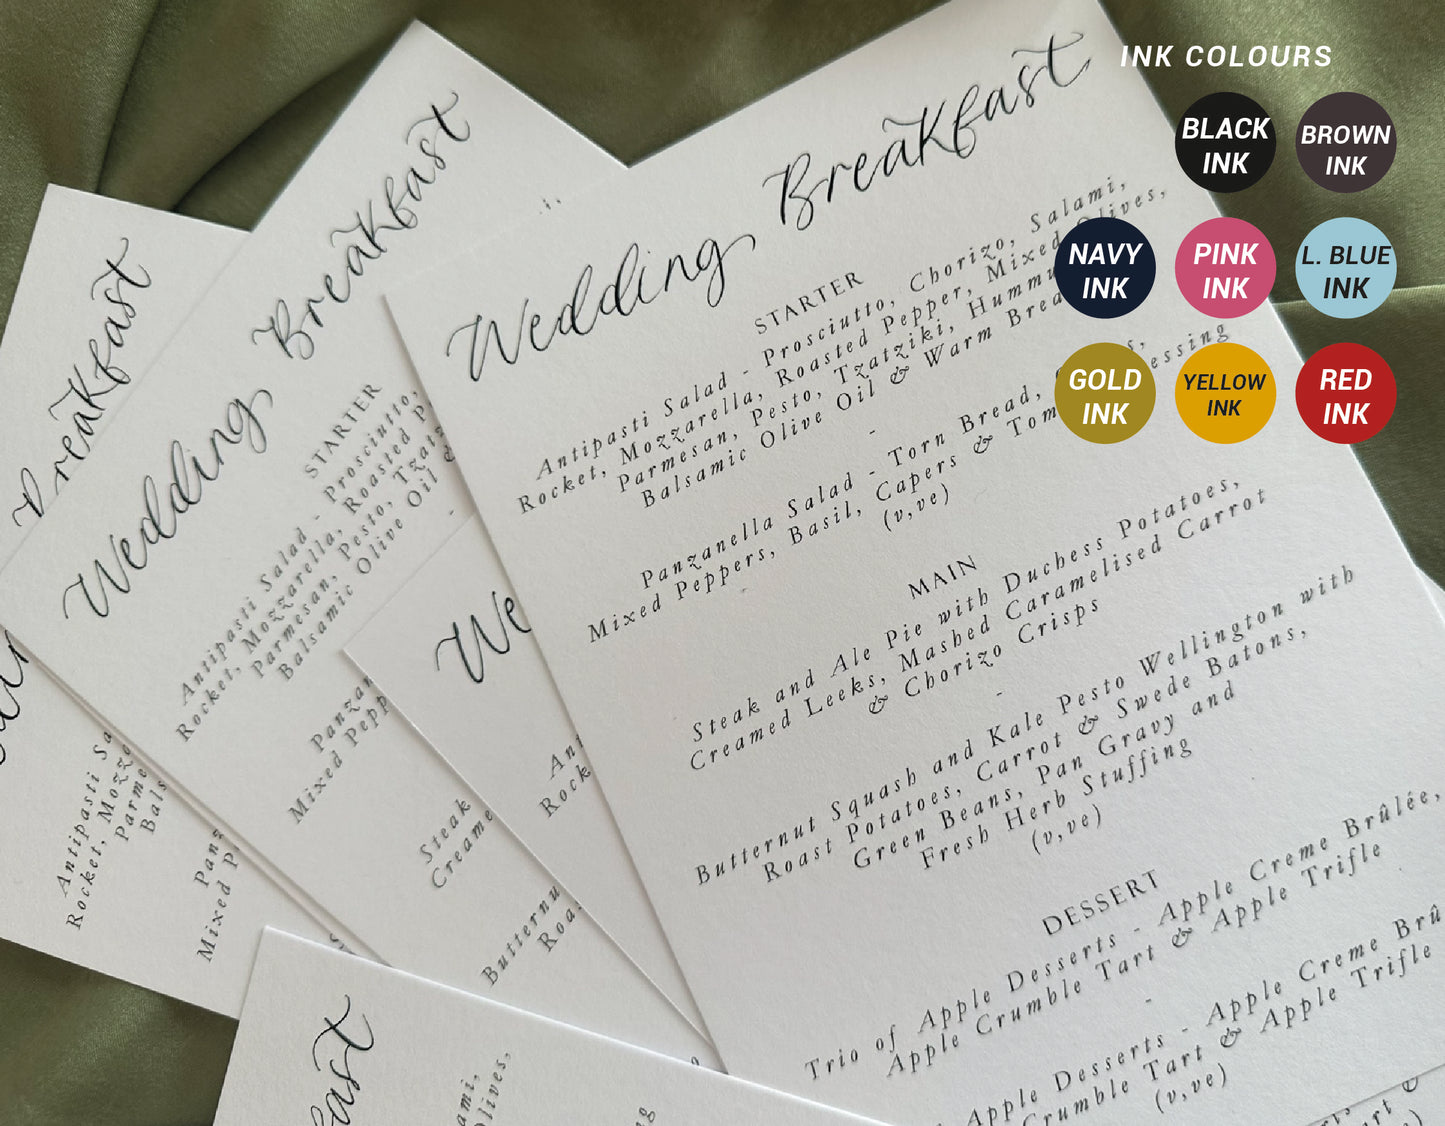 INK COLOURS
BLACK INK
BROWN INK
NAVY INK
PINK INK
L. BLUE INK
GOLD INK
YELLOW INK
RED INK
Wedding Breakfast
STARTER
Antipasti Salad - Prosciutto, Chorizo, Salami,
Rocket, Mozzarella, Roasted Pepper, Mixed Olives,
Parmesan, Pesto, Tzatziki, Hummu
Balsamic Olive Oil & Warm Brea
-
Panzanella Salad - Torn Bread,
Mixed Peppers, Basil, Capers & Tom essing
(v,ve)
MAIN
Steak and Ale Pie with Duchess Potatoes,
Creamed Leeks, Mashed Caramelised Carrot
& Chorizo Crisps
-
Butternut Squash and Kale Pesto Wellington with
Roast Potatoes, Carrot & Swede Batons,
Green Beans, Pan Gravy and
Fresh Herb Stuffing
(v,ve)
DESSERT
Trio of Apple Desserts - Apple Creme Brûlée,
Apple Crumble Tart & Apple Trifle
-
Apple Desserts - Apple Creme Brû
Crumble Tart & Apple Trifle
(v,ve)
Wedding Breakfast
STARTER
Antipasti Salad - Prosciutto,
Rocket, Mozzarella, Roasted P
Parmesan, Pesto, Tzatz
Balsamic Olive Oil &
-
Panzan
Mixed Pepp
Steak
Creame
Butternu
Roa
Breakfast
Antipasti Sa
Rocket, Mozz
Parme
Bals
Panz
Mixed P
We
Ant
Rock
fast
ami,
lives,